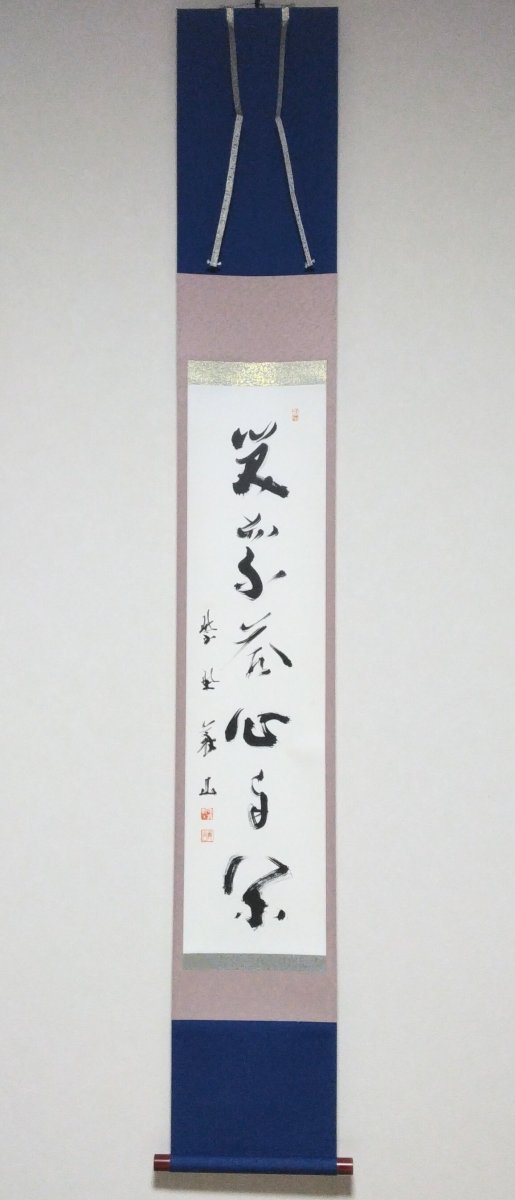 笑而不答心自閑
紫野 義山